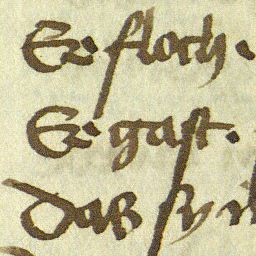 Er floch.
Er gast.
Das sy